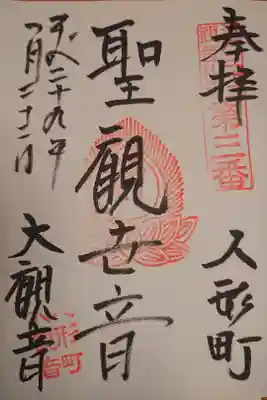 奉拝
第三番
人形町
聖観世音
大観音
平成二十九年
一月二十二日